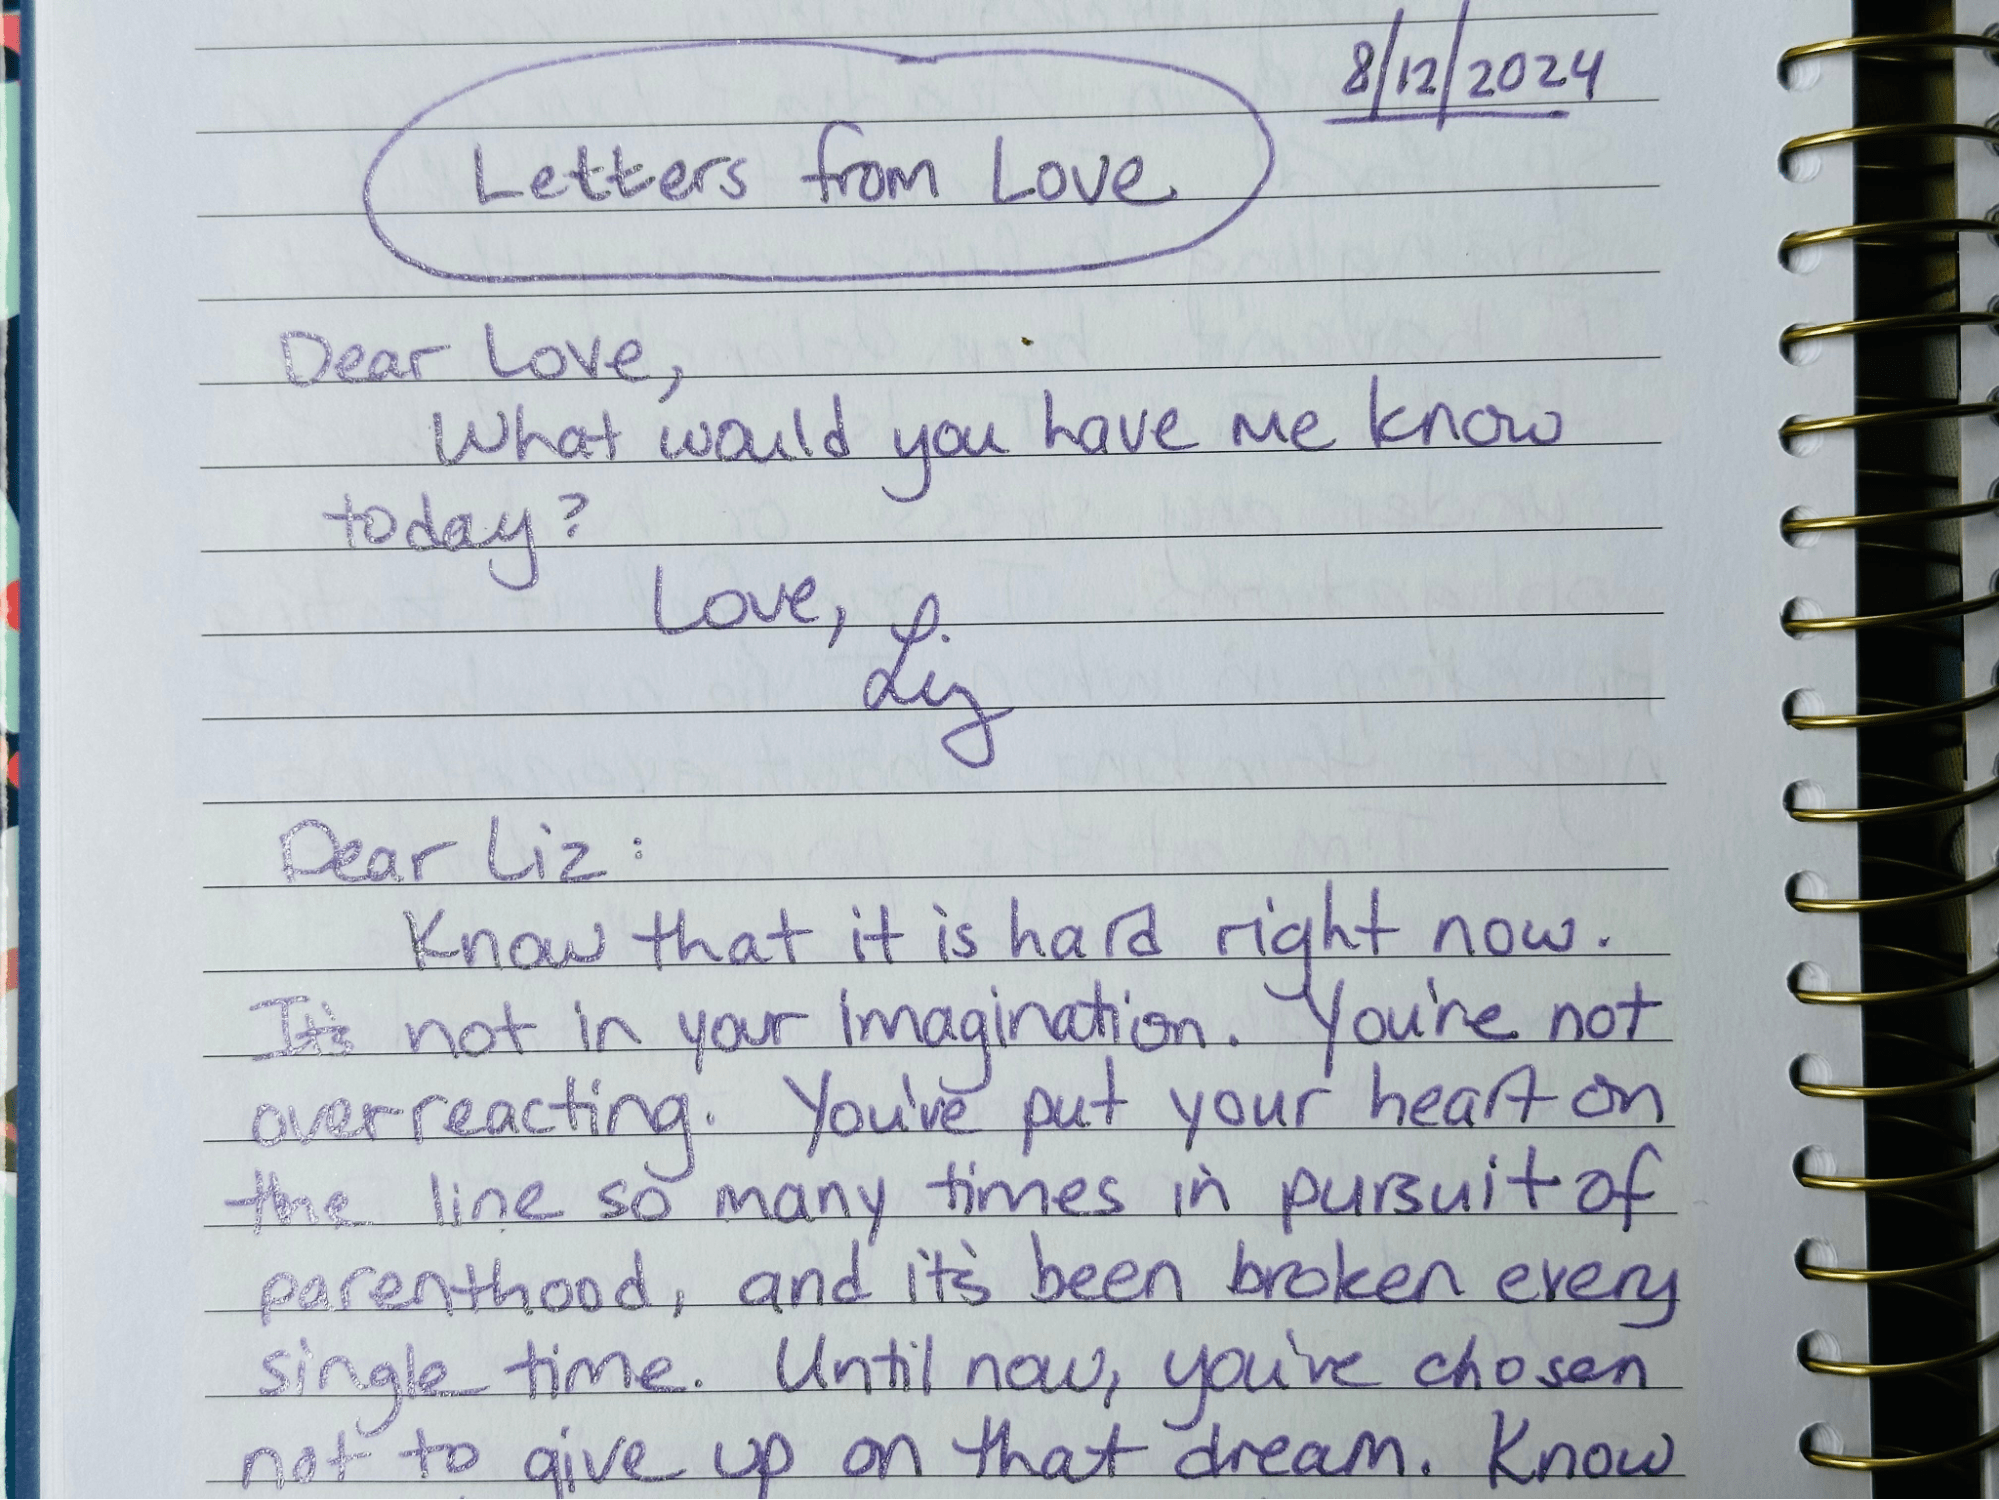 8/12/2024
Letters from Love
Dear Love,
What would you have me know
today?
Love,
Liz
Dear Liz:
Know that it is hard right now.
It's not in your imagination. You're not
overreacting. You've put your heart on
the line so many times in pursuit of
parenthood, and it's been broken every
single time. Until now, you've chosen
not to give up on that dream. Know